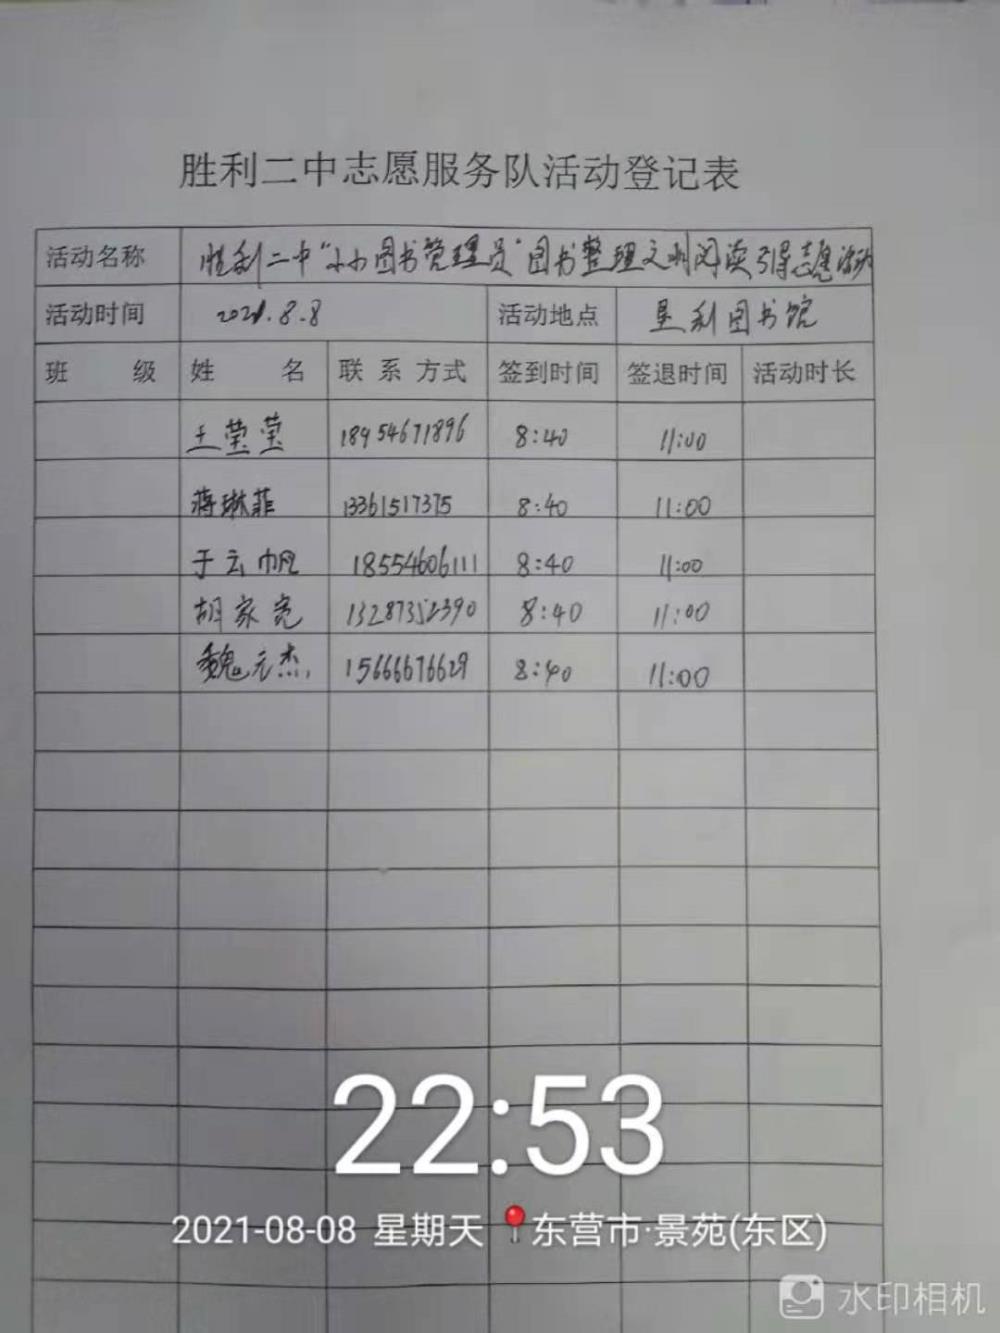 胜利二中志愿服务队活动登记表
活动名称 胜利二中“小小图书管理员”图书整理文明阅读引导志愿活动
活动时间 2021.8.8 活动地点 垦利图书馆
班 级 姓 名 联 系 方式 签到时间 签退时间 活动时长
王莹莹 18954671896 8:40 11:00
蒋琳菲 13361517375 8:40 11:00
于云帆 18554606111 8:40 11:00
胡家宽 13287352390 8:40 11:00
魏元杰 15666676629 8:40 11:00
22:53
2021-08-08 星期天 东营市·景苑(东区)
水印相机